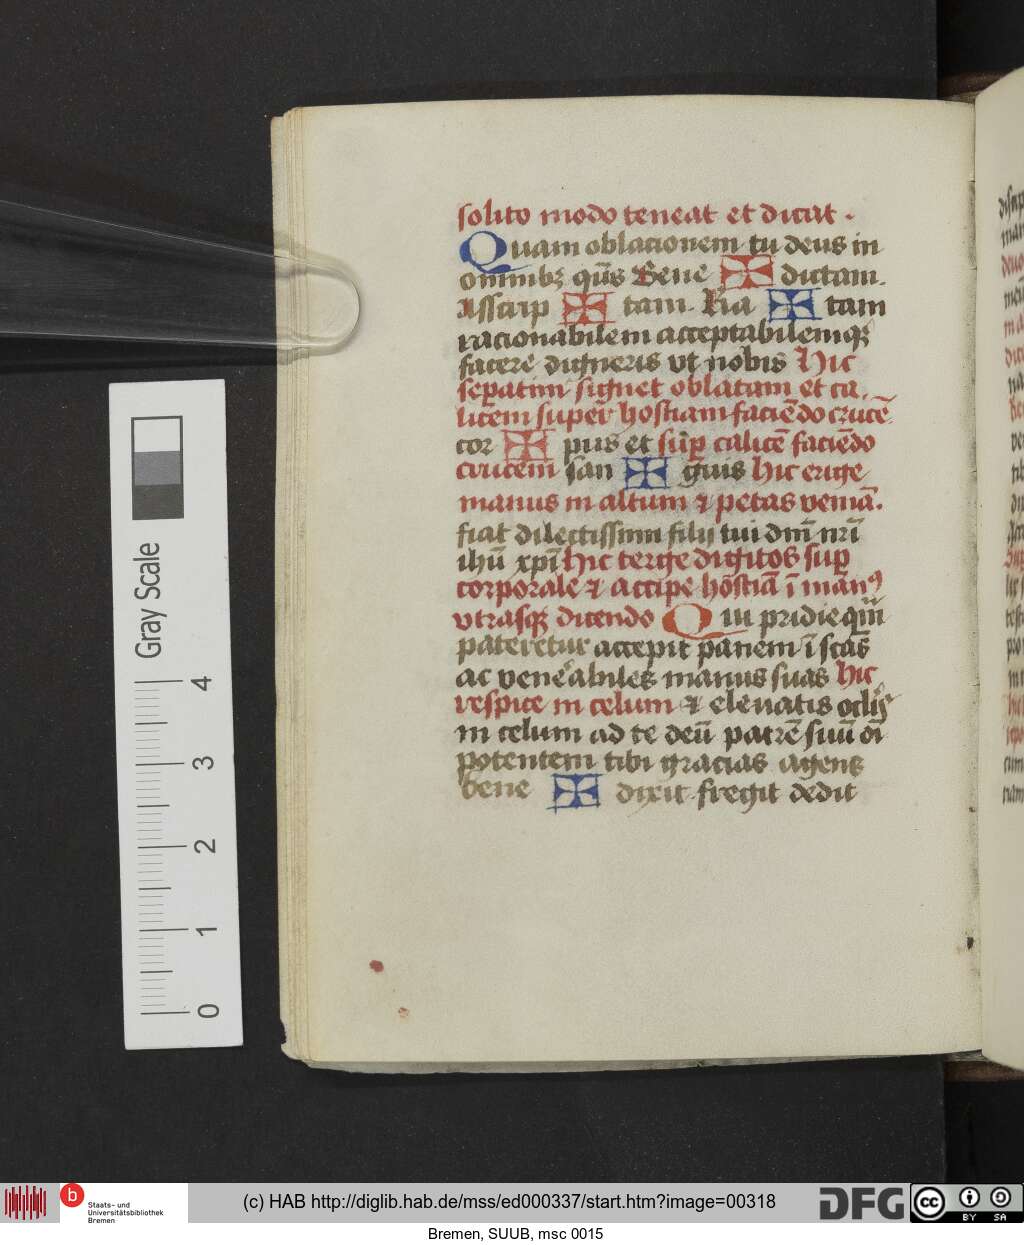 solito modo teneat et dicat .
Quam oblacionem tu deus in
omnibꝫ qūs Bene ✠ dictam.
Asscrip ✠ tam. Ra ✠ tam
racionabilem acceptabilemqꝫ
facere digneris vt nobis Hic
seꝑatim signet oblatam et ca,
licem super hostiam faciēdo crucē
cor ✠ pus et suꝑ calicē faciēdo
crucem san ✠ guis hic erige
manus in altum ⁊ petas veniā.
fiat dilectissimi filij tui dnī nrī
ihū xpī hic terge digitos suꝑ
corporale ⁊ accipe hostiā ī manꝰ
vtrasqꝫ dicendo Qui pridie qm̄
pateretur accepit panem ī scas̄
ac veneabiles manus suas hic
respice in celum ⁊ eleuatis oclis
in celum ad te deū patrē suū oī
potentem tibi gracias agens
bene ✠ dixit fregit dedit
Gray Scale
4
3
2
1
0
b
Staats- und
Universitätsbibliothek
Bremen
(c) HAB http://diglib.hab.de/mss/ed000337/start.htm?image=00318
DFG
cc
BY SA
Bremen, SUUB, msc 0015